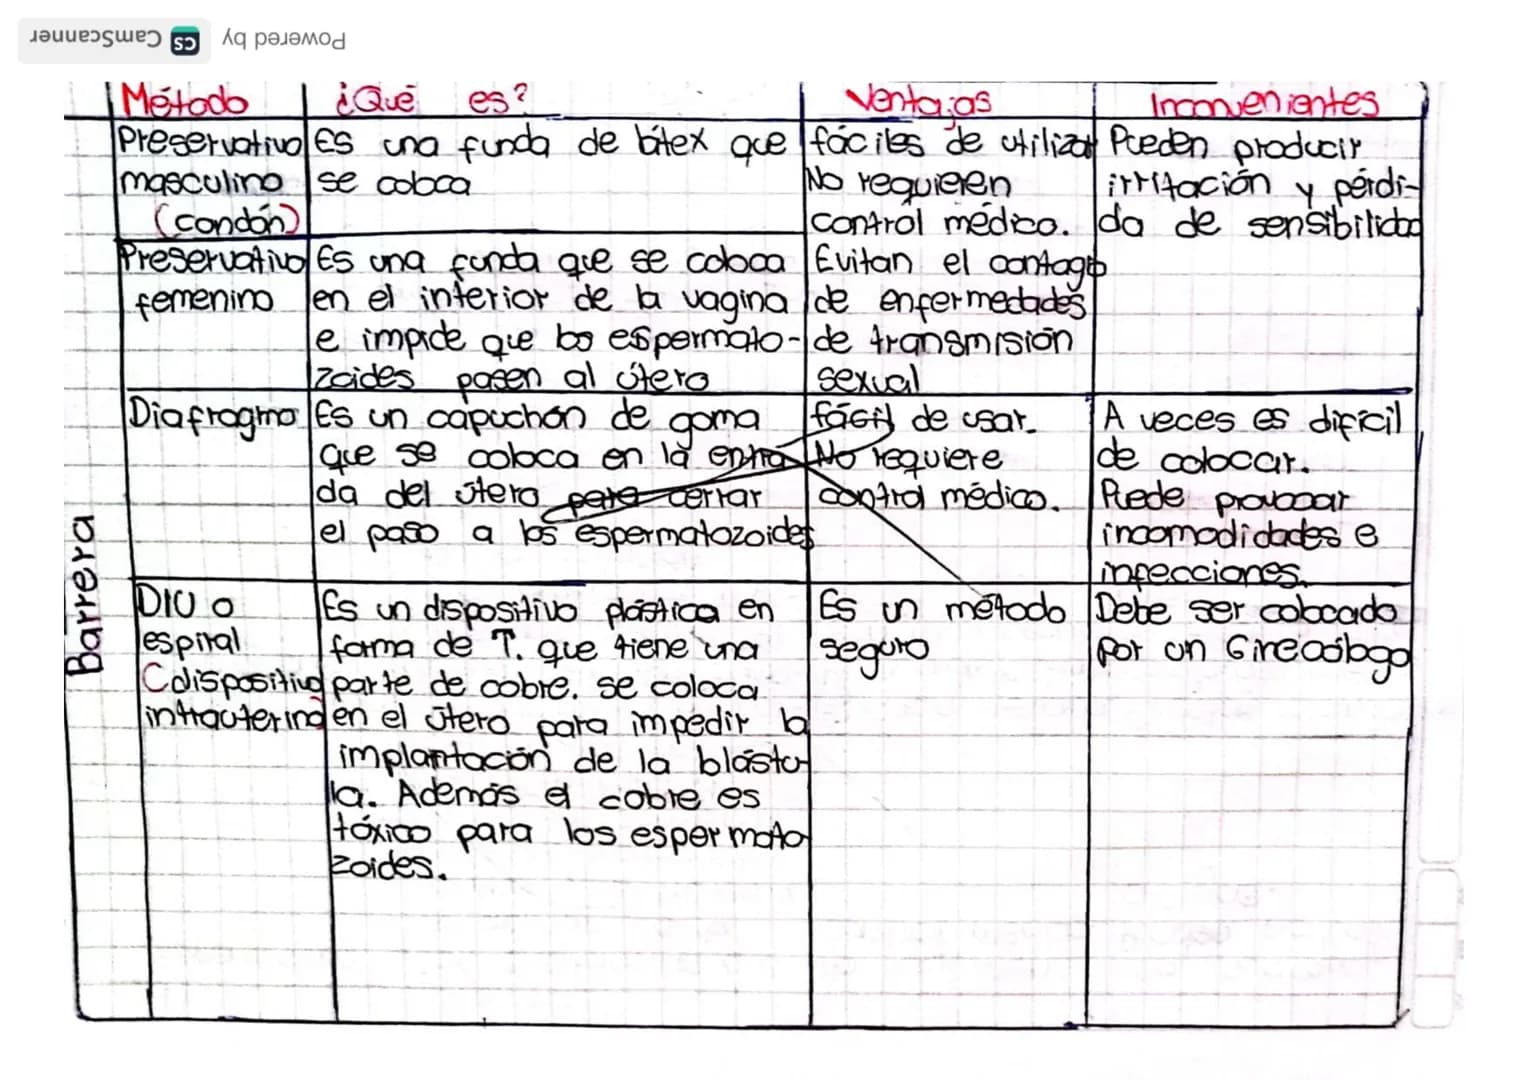 Powered by CS CamScanner
Método ¿Qué es? Ventajas Inconvenientes
Preservativo
masculino
(condón)
Es una funda de látex que
se coloca
fáciles de utilizar
No requieren
control médico.
Pueden producir
irritación y pérdi-
da de sensibilidad
Preservativo
femenino
Es una funda que se coloca
en el interior de la vagina
e impide que los espermato-
zoides pasen al útero
Evitan el contagio
de enfermedades
de transmisión
sexual
Diafragma
Es un capuchón de goma
que se coloca en la entra
da del útero para cerrar
el paso a los espermatozoides
fácil de usar.
No requiere
control médico.
A veces es difícil
de colocar.
Puede provocar
incomodidades e
infecciones.
Barrera
DIU o
espiral
(dispositivo
intrauterino
Es un dispositivo plástica en
forma de T. que tiene una
parte de cobre. se coloca
en el útero para impedir la
implantación de la blástu-
la. Además el cobre es
tóxico para los espermato
zoides.
Es un método
seguro
Debe ser colocado
por un Ginecólogo